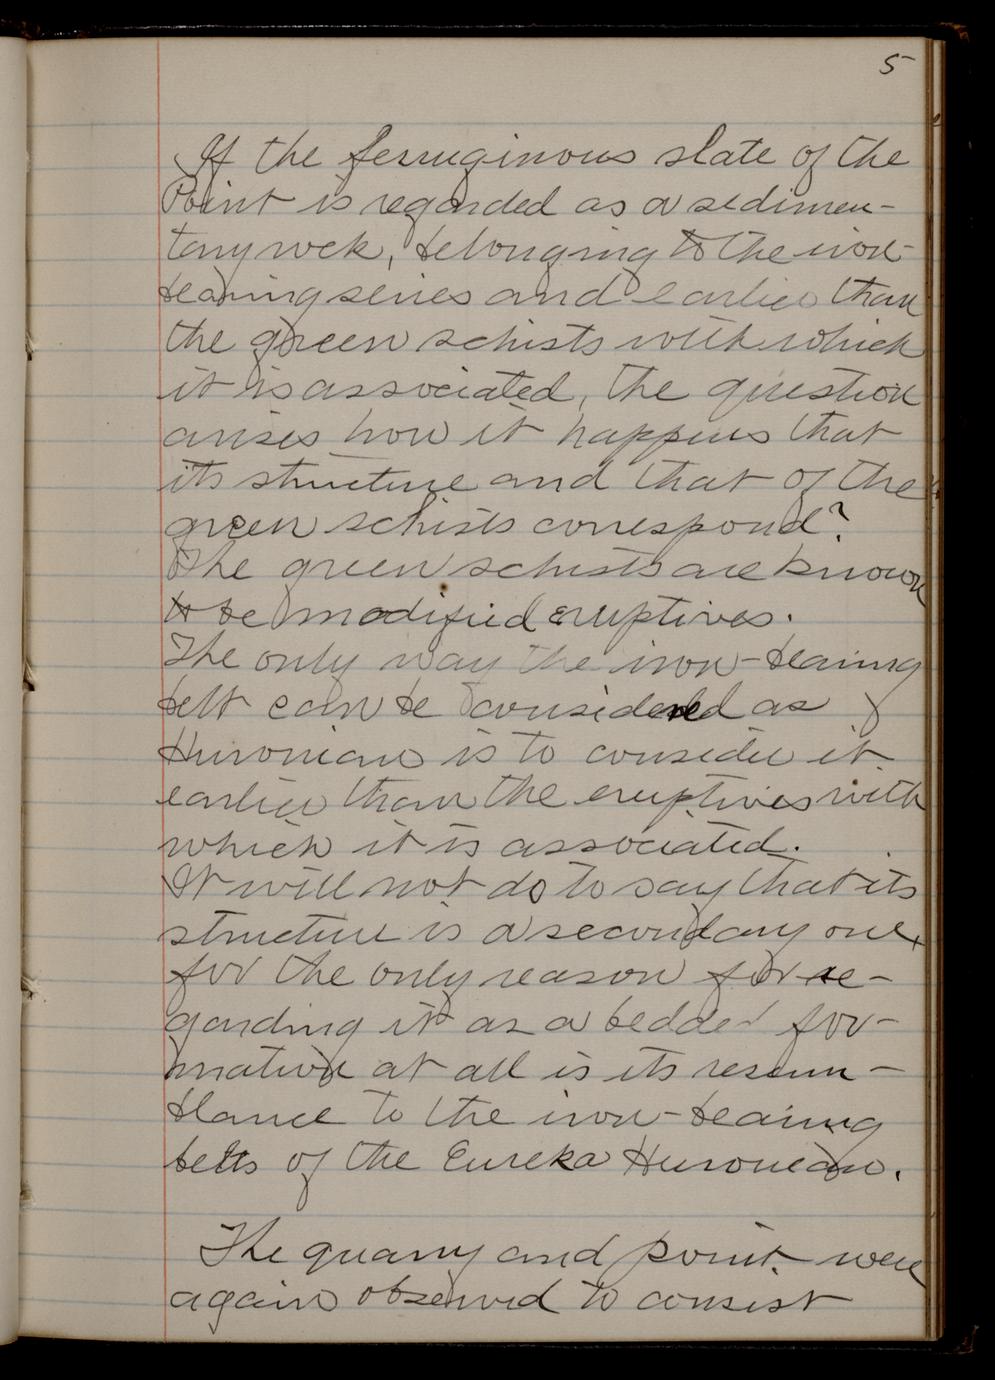 5
If the ferruginous slate of the
Point is regarded as a sedimen-
tary rock, belonging to the iron-
bearing series and earlier than
the green schists with which
it is associated, the question
arises how it happens that
its structure and that of the
green schists correspond?
The green schists are known
to be modified eruptives.
The only way the iron-bearing
belt can be considered as
Huronian is to consider it
earlier than the eruptives with
which it is associated.
It will not do to say that its
structure is a secondary one,
for the only reason for re-
garding it as a bedded for-
mation at all is its resem-
blance to the iron-bearing
belts of the Eureka Huronian.
The quarry and point were
again observed to consist